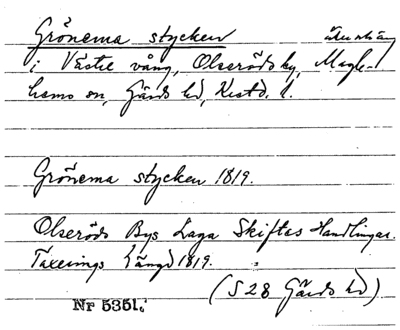 Grönema stycken åker o äng
i Västre vång, Olseröds by, Magle-
hems sn, Gärds hd, Krist. l.
Grönema stycken 1819.
Olseröds Bys Laga Skiftes Handlingar.
Taxerings Längd 1819.
(S 28 Gärds hd)
Nr 5351.